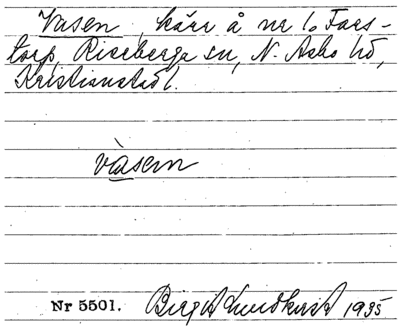 Vasen, kärr å nr 1, Fars-
torp, Riseberga sn, N. Åsbo hd,
Kristianstad l.
vàsen
Nr 5501. Birgit Lundkvist 1935